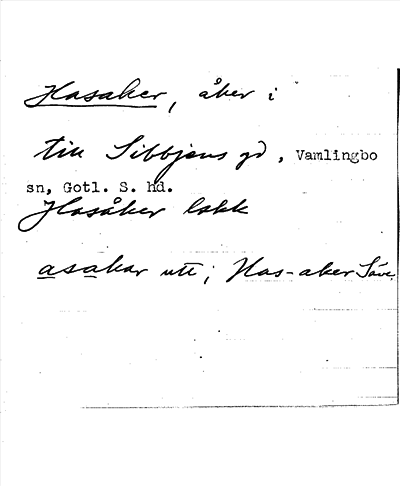 Hasaker, åker i
till Sibbjens gd, Vamlingbo
sn, Gotl. S. hd.
Hasåker lokk
asakar utt; Has-aker Säve